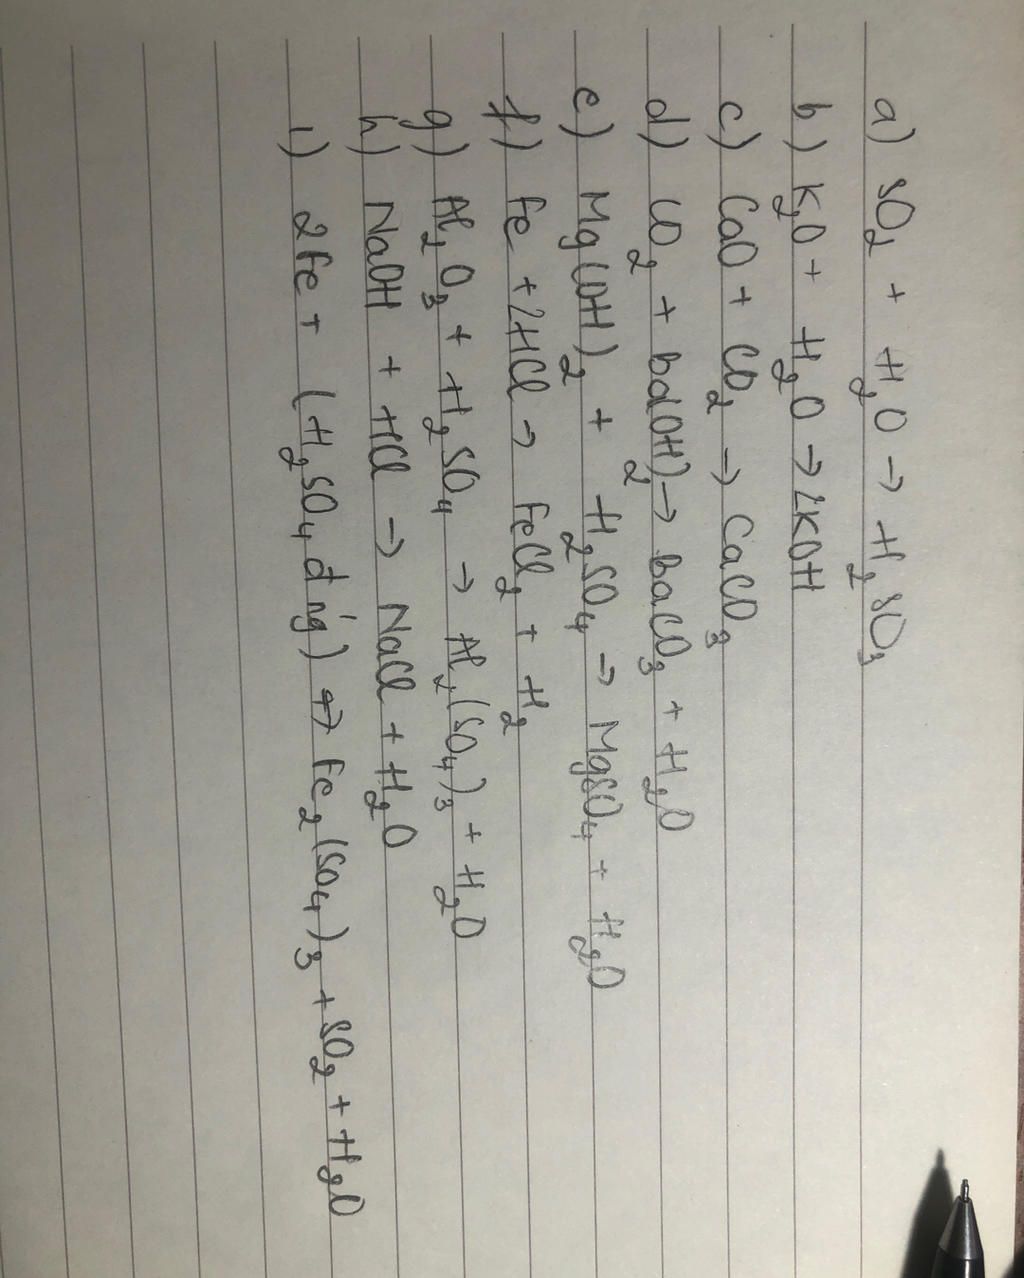 a) SO₂ + H₂O → H₂SO₃
b) K₂O + H₂O → 2KOH
c) CaO + CO₂ → CaCO₃
d) CO₂ + ba(OH)₂ → baCO₃ + H₂O
e) Mg(OH)₂ + H₂SO₄ → MgSO₄ + H₂O
f) Fe + 2HCl → FeCl₂ + H₂
g) Al₂O₃ + H₂SO₄ → Al₂(SO₄)₃ + H₂O
h) NaOH + HCl → NaCl + H₂O
1) 2Fe + (H₂SO₄ đ nóng) → Fe₂(SO₄)₃ + SO₂ + H₂O